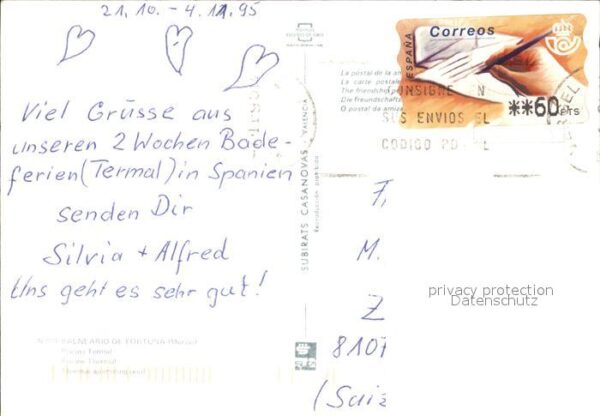 21.10. - 4.11.95
Viel Grüsse aus
unseren 2 Wochen Bade-
ferien (Termal) in Spanien
senden Dir
Silvia + Alfred
Uns geht es sehr gut!
BALNEARIO DE FORTUNA (Murcia)
Piscina Termal
SUBIRATS CASANOVAS VALENCIA
La postal de la
La carte postale
The friendship
Die freundschafts
O postal da
ESPAÑA
Correos
**60 PTS
CONSIGNE EN
SUS ENVIOS EL
CODIGO PO
M.
Z
8107
(Suiz
privacy protection
Datenschutz